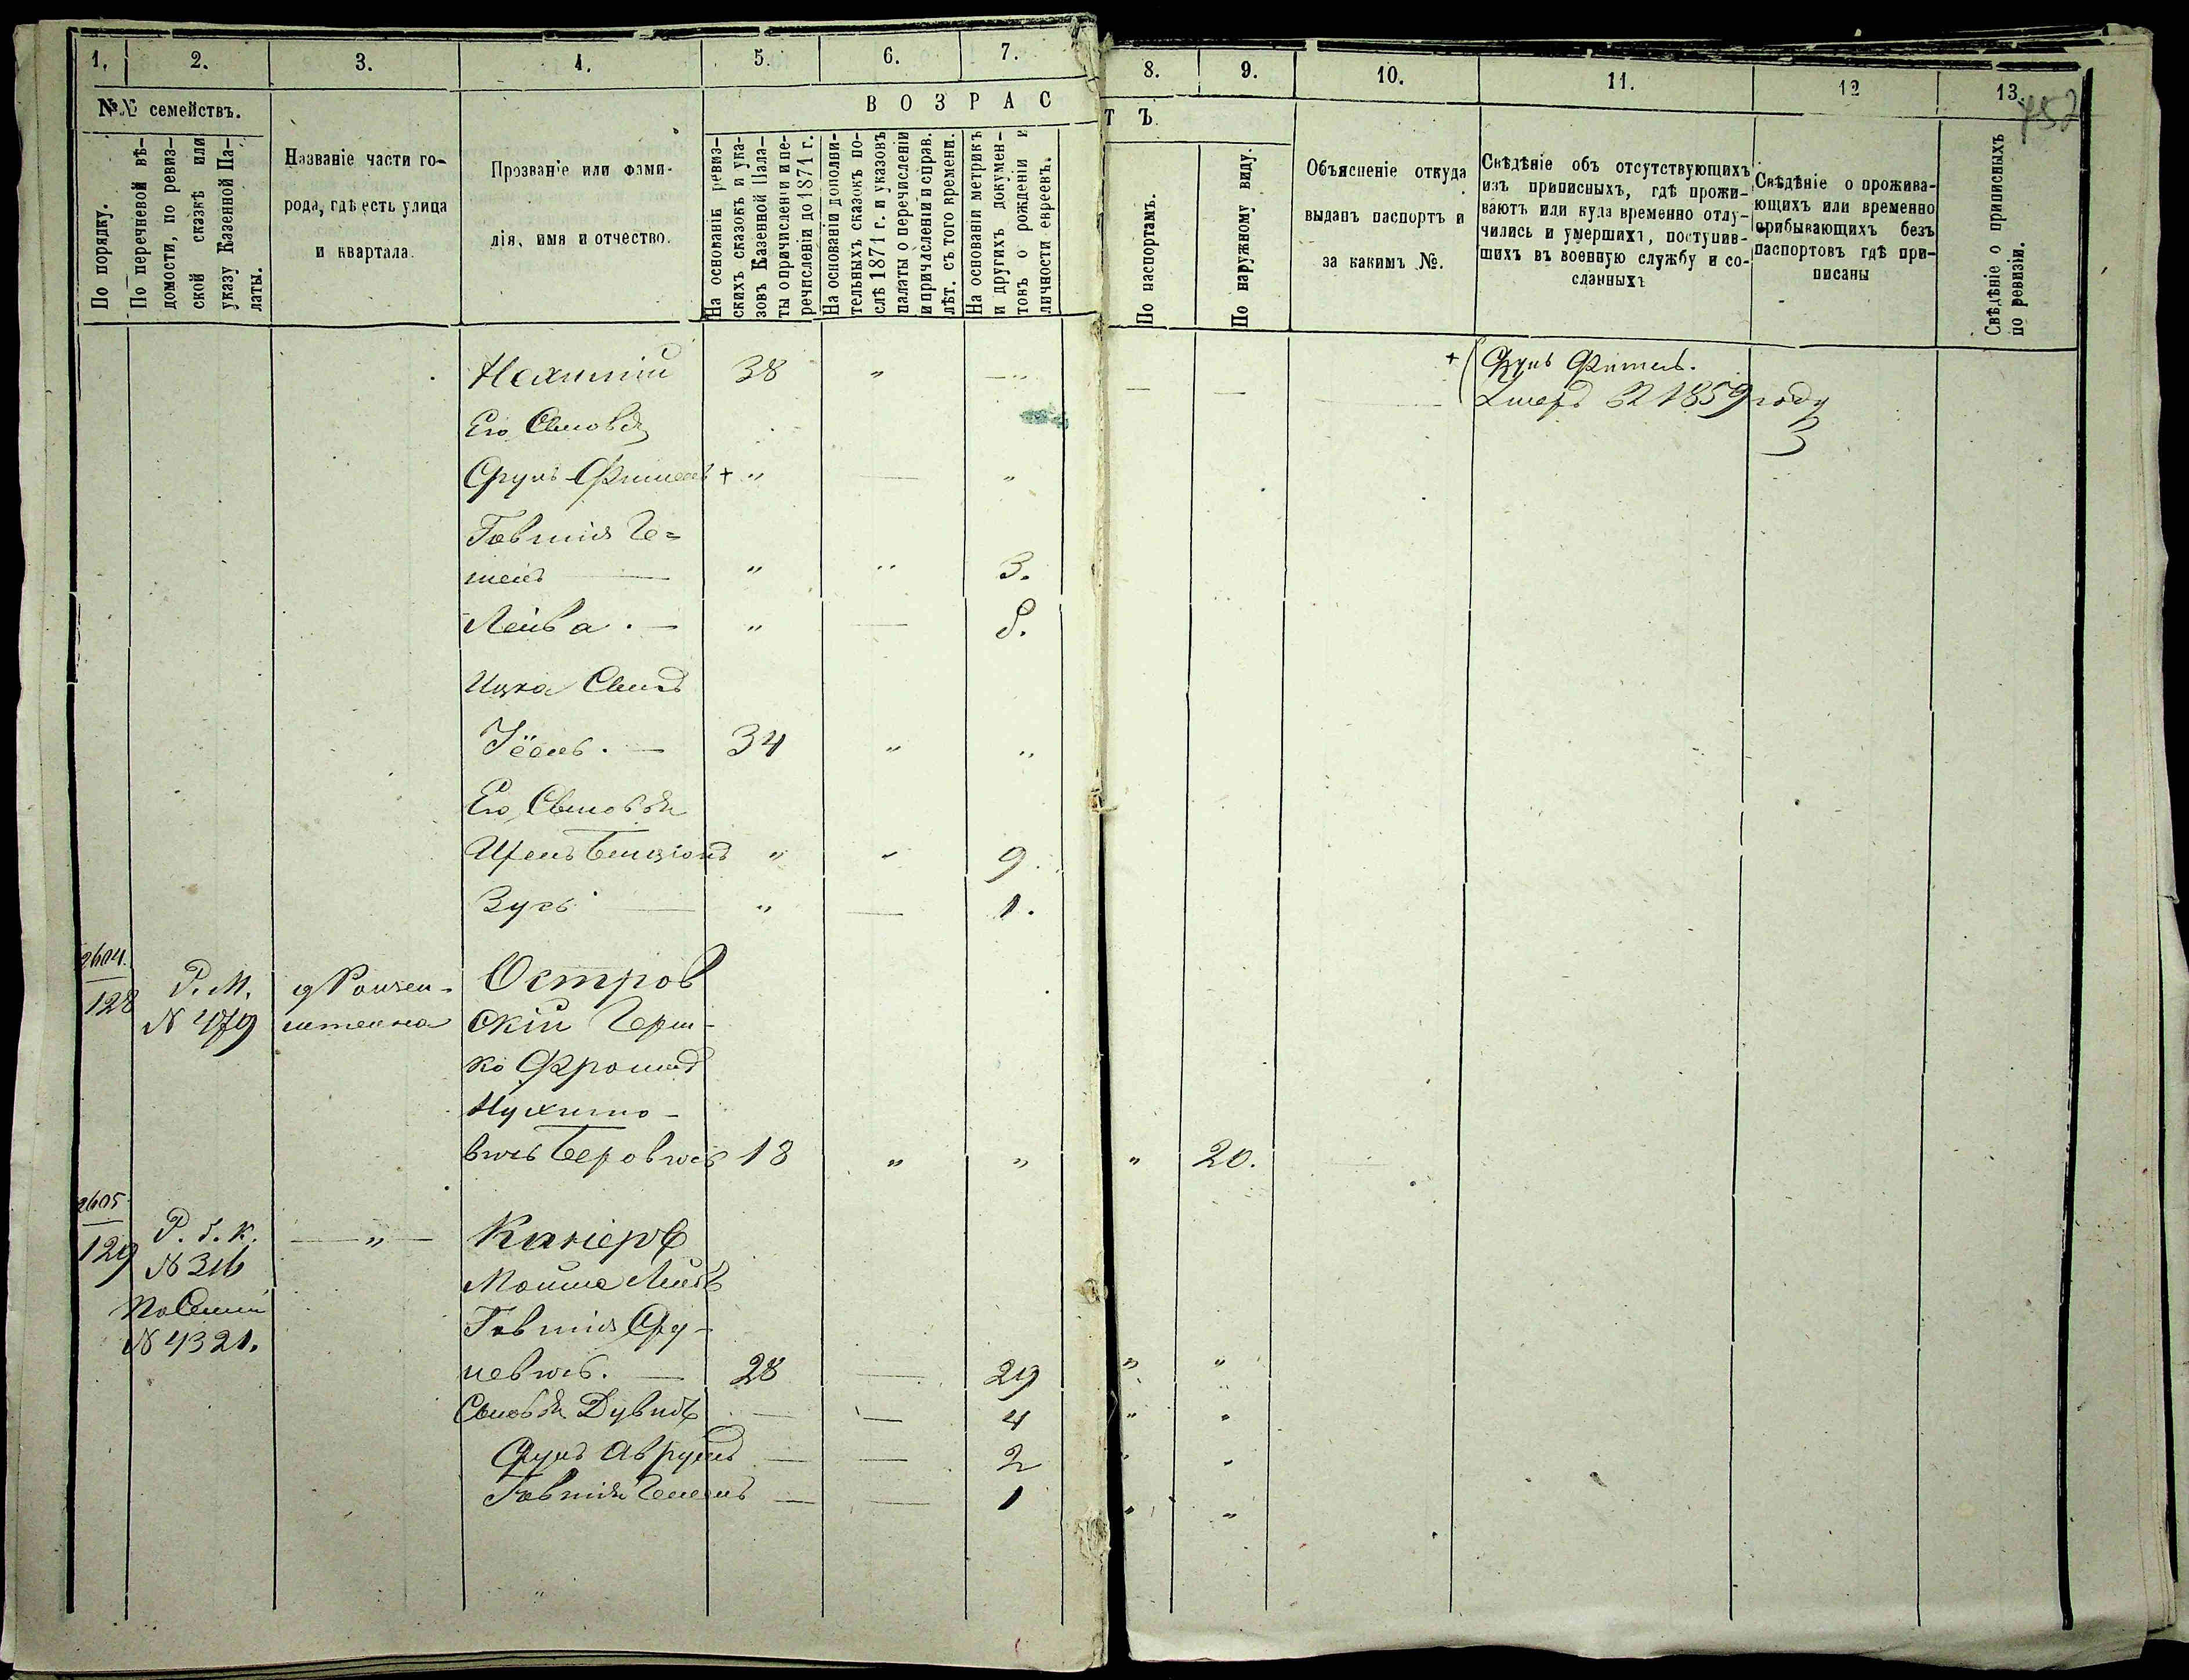 1. 2. 3. 4. 5. 6. 7. 8. 9. 10. 11. 12 13.
752
№№ семействъ.
По порядку.
По перечневой вѣ-
домости, по ревиз-
ской сказкѣ или
указу Казенной Па-
латы.
Названіе части го-
рода, гдѣ есть улица
и квартала.
Прозваніе или фами-
лія, имя и отчество.
ВОЗРАСТЪ
На основаніи ревиз-
скихъ сказокъ и ука-
зовъ Казенной Пала-
ты о причисленіи и пе-
речисленіи до 1871 г.
На основаніи дополни-
тельныхъ сказокъ по-
слѣ 1871 г. и указовъ
палаты о перечисленіи
и причисленіи и справ.
лѣт. съ того времени.
На основаніи метрикъ
и другихъ докумен-
товъ о рожденіи и
личности евреевъ.
По паспортамъ.
По наружному виду.
Объясненіе откуда
выданъ паспортъ и
за какимъ №.
Свѣдѣніе объ отсутствующихъ
изъ приписныхъ, гдѣ прожи-
ваютъ или куда временно отлу-
чились и умершихъ, поступив-
шихъ въ военную службу и со-
сланныхъ
Свѣдѣніе о прожива-
ющихъ или временно
прибывающихъ безъ
паспортовъ гдѣ при-
писаны
Свѣдѣніе о приписныхъ
по ревизіи.
38 " —
Его Сыновья
Срулъ Фишель + " — "
+ Срулъ Фишель.
Умеръ 1859 году
Говшія Ге=
шель — " " 3.
Лейба . — " — 5.
Ицка Сынъ
Іосль . — 34 " "
Его Сыновья
Бенціонъ " " 9.
Зусь — " — 1.
2604.
128 Р. М.
N 479
Остров
скій Герш-
ко Фроимъ
Нухимо-
вичь Беровичь 18 " " " 20.
2605
129 Р. б. к.
N 316
— " —
N 4321.
Мошка Лейбъ
Говшія Сру-
левичь. — 28 — 29 " "
Сыновья Дувидъ — — 4 " "
Срулъ Аврумъ — — 2 " "
Говшія Гешель — — 1 " "